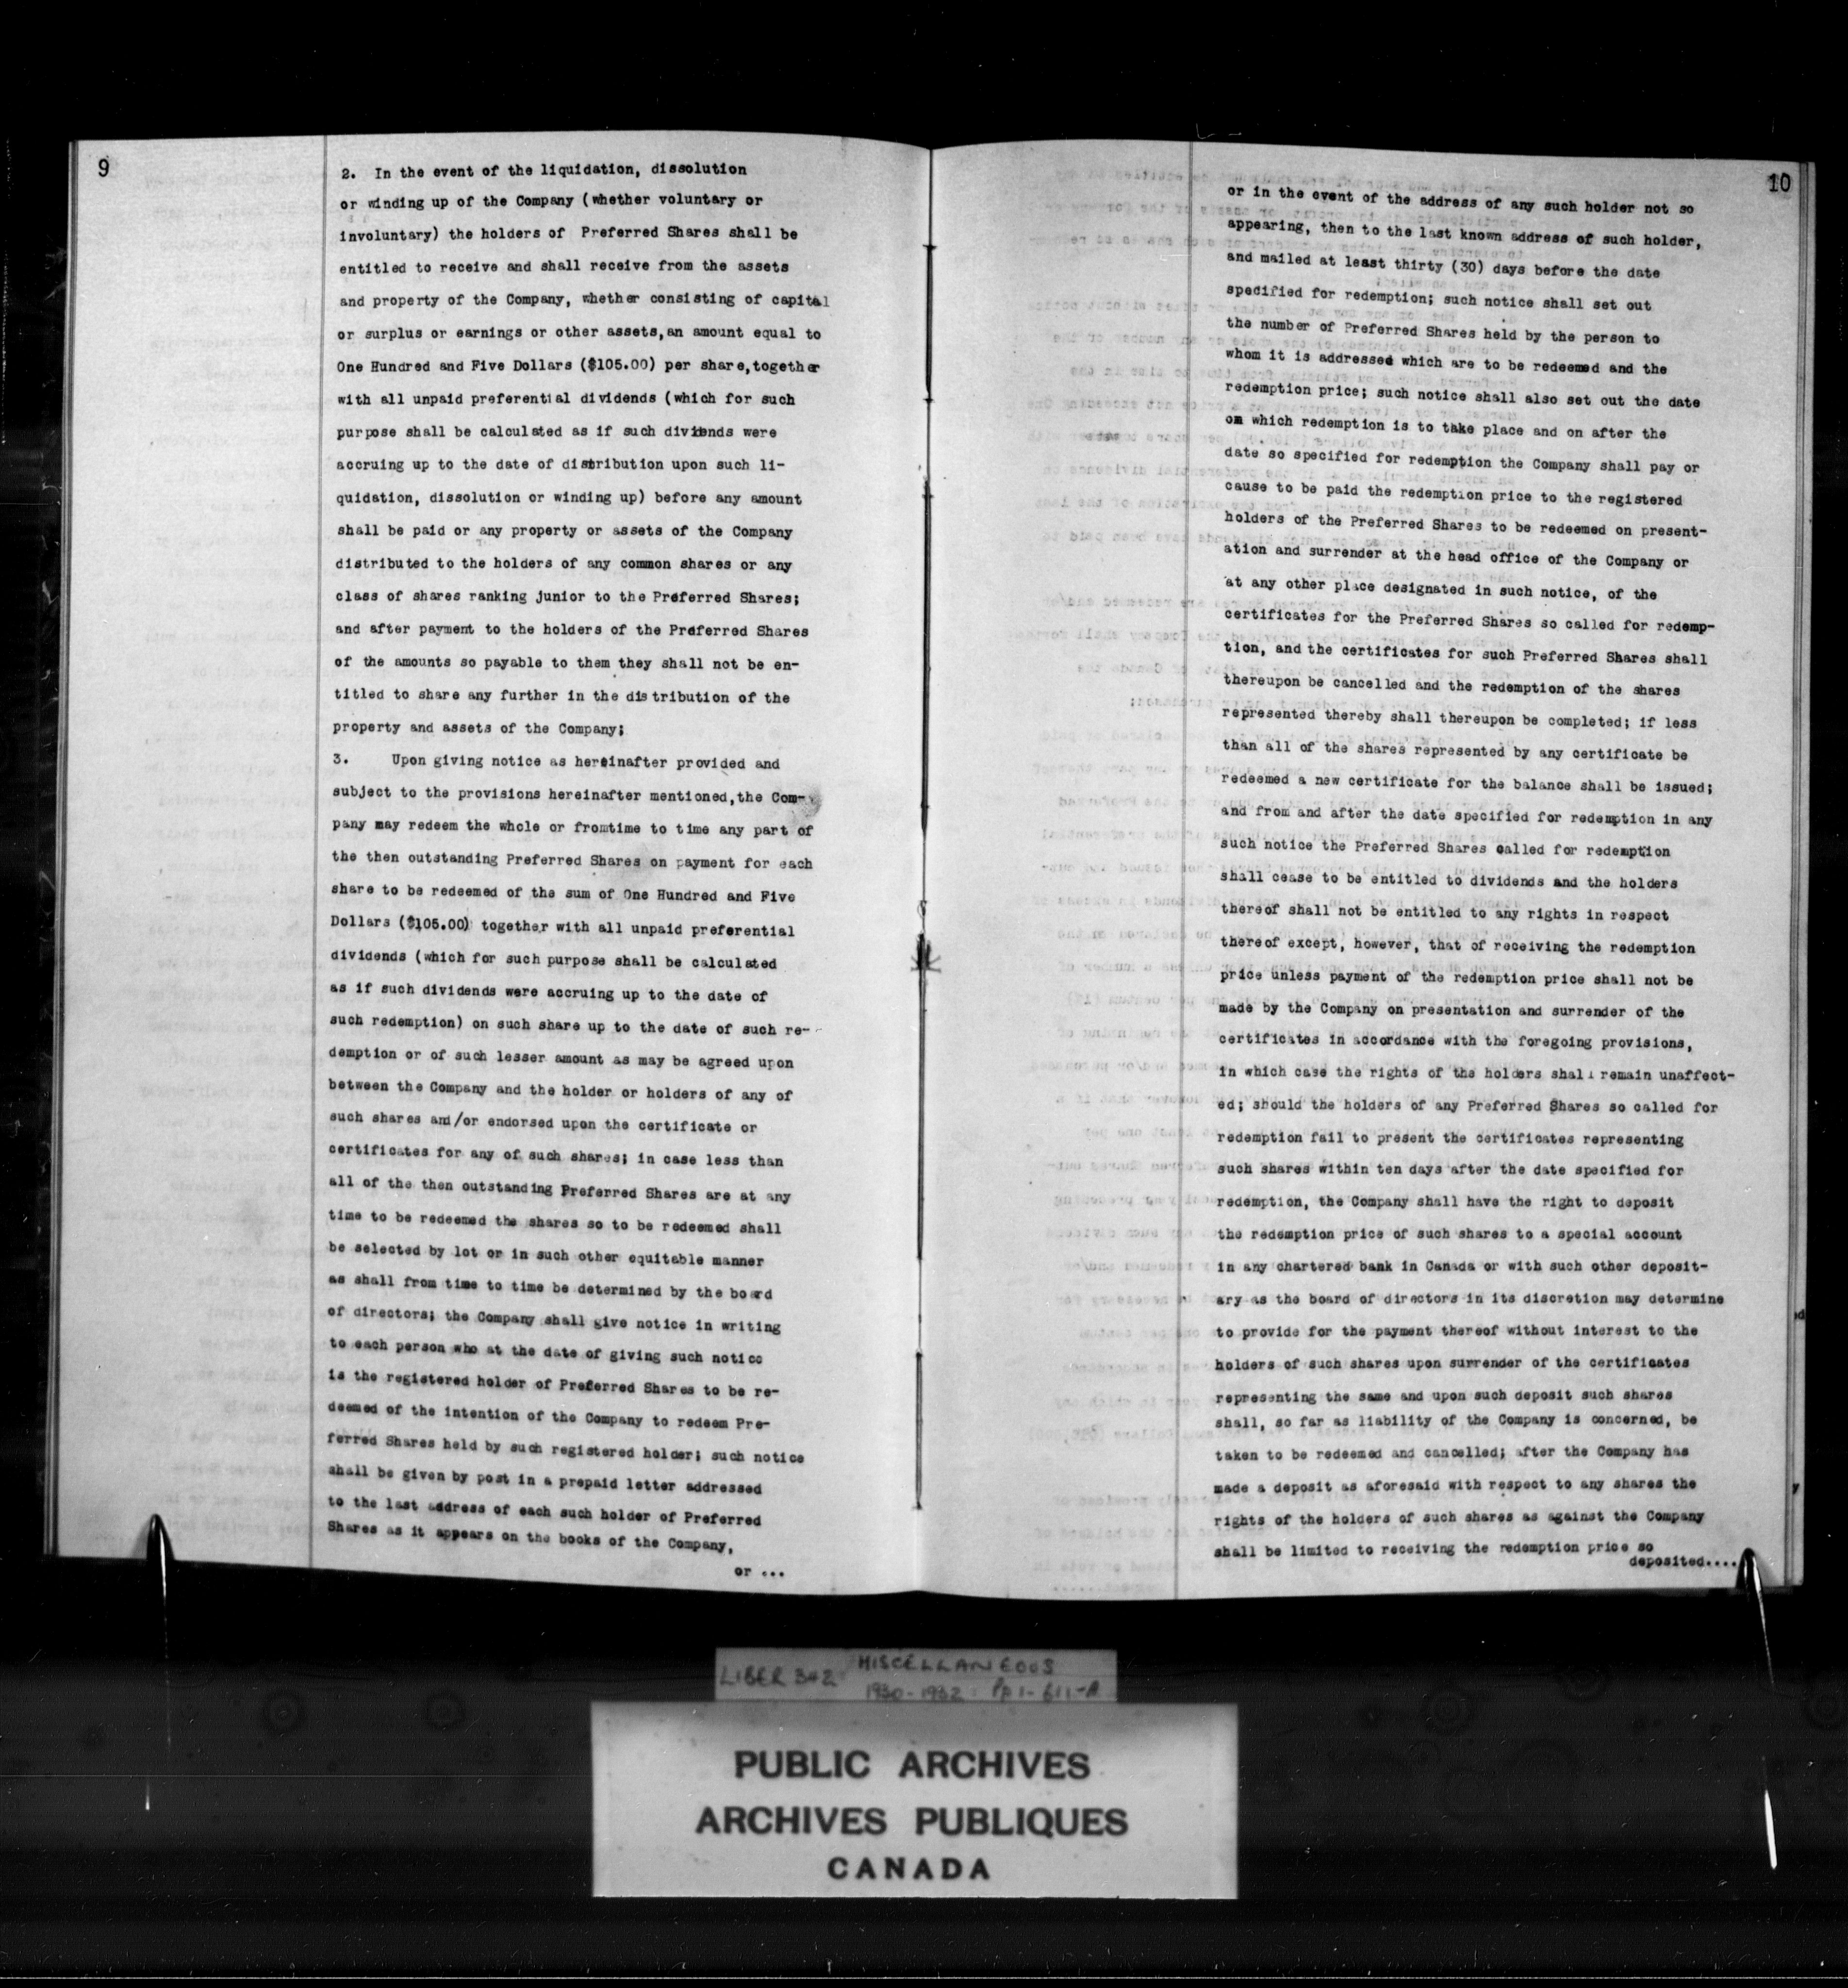 9
2. In the event of the liquidation, dissolution
or winding up of the Company (whether voluntary or
involuntary) the holders of Preferred Shares shall be
entitled to receive and shall receive from the assets
and property of the Company, whether consisting of capital
or surplus or earnings or other assets,an amount equal to
One Hundred and Five Dollars ($105.00) per share,together
with all unpaid preferential dividends (which for such
purpose shall be calculated as if such dividends were
accruing up to the date of distribution upon such li-
quidation, dissolution or winding up) before any amount
shall be paid or any property or assets of the Company
distributed to the holders of any common shares or any
class of shares ranking junior to the Preferred Shares;
and after payment to the holders of the Preferred Shares
of the amounts so payable to them they shall not be en-
titled to share any further in the distribution of the
property and assets of the Company;
3. Upon giving notice as hereinafter provided and
subject to the provisions hereinafter mentioned,the Com-
pany may redeem the whole or fromtime to time any part of
the then outstanding Preferred Shares on payment for each
share to be redeemed of the sum of One Hundred and Five
Dollars ($105.00) together with all unpaid preferential
dividends (which for such purpose shall be calculated
as if such dividends were accruing up to the date of
such redemption) on such share up to the date of such re-
demption or of such lesser amount as may be agreed upon
between the Company and the holder or holders of any of
such shares and/or endorsed upon the certificate or
certificates for any of such shares; in case less than
all of the then outstanding Preferred Shares are at any
time to be redeemed the shares so to be redeemed shall
be selected by lot or in such other equitable manner
as shall from time to time be determined by the board
of directors; the Company shall give notice in writing
to each person who at the date of giving such notice
is the registered holder of Preferred Shares to be re-
deemed of the intention of the Company to redeem Pre-
ferred Shares held by such registered holder; such notice
shall be given by post in a prepaid letter addressed
to the last address of each such holder of Preferred
Shares as it appears on the books of the Company,
or ...
10
or in the event of the address of any such holder not so
appearing, then to the last known address of such holder,
and mailed at least thirty (30) days before the date
specified for redemption; such notice shall set out
the number of Preferred Shares held by the person to
whom it is addressed which are to be redeemed and the
redemption price; such notice shall also set out the date
on which redemption is to take place and on after the
date so specified for redemption the Company shall pay or
cause to be paid the redemption price to the registered
holders of the Preferred Shares to be redeemed on present-
ation and surrender at the head office of the Company or
at any other place designated in such notice, of the
certificates for the Preferred Shares so called for redemp-
tion, and the certificates for such Preferred Shares shall
thereupon be cancelled and the redemption of the shares
represented thereby shall thereupon be completed; if less
than all of the shares represented by any certificate be
redeemed a new certificate for the balance shall be issued;
and from and after the date specified for redemption in any
such notice the Preferred Shares called for redemption
shall cease to be entitled to dividends and the holders
thereof shall not be entitled to any rights in respect
thereof except, however, that of receiving the redemption
price unless payment of the redemption price shall not be
made by the Company on presentation and surrender of the
certificates in accordance with the foregoing provisions,
in which case the rights of the holders shall remain unaffect-
ed; should the holders of any Preferred Shares so called for
redemption fail to present the certificates representing
such shares within ten days after the date specified for
redemption, the Company shall have the right to deposit
the redemption price of such shares to a special account
in any chartered bank in Canada or with such other deposit-
ary as the board of directors in its discretion may determine
to provide for the payment thereof without interest to the
holders of such shares upon surrender of the certificates
representing the same and upon such deposit such shares
shall, so far as liability of the Company is concerned, be
taken to be redeemed and cancelled; after the Company has
made a deposit as aforesaid with respect to any shares the
rights of the holders of such shares as against the Company
shall be limited to receiving the redemption price so
deposited....
LIBER 342 MISCELLANEOUS
1930-1932 : Pp 1-611-A
PUBLIC ARCHIVES
ARCHIVES PUBLIQUES
CANADA